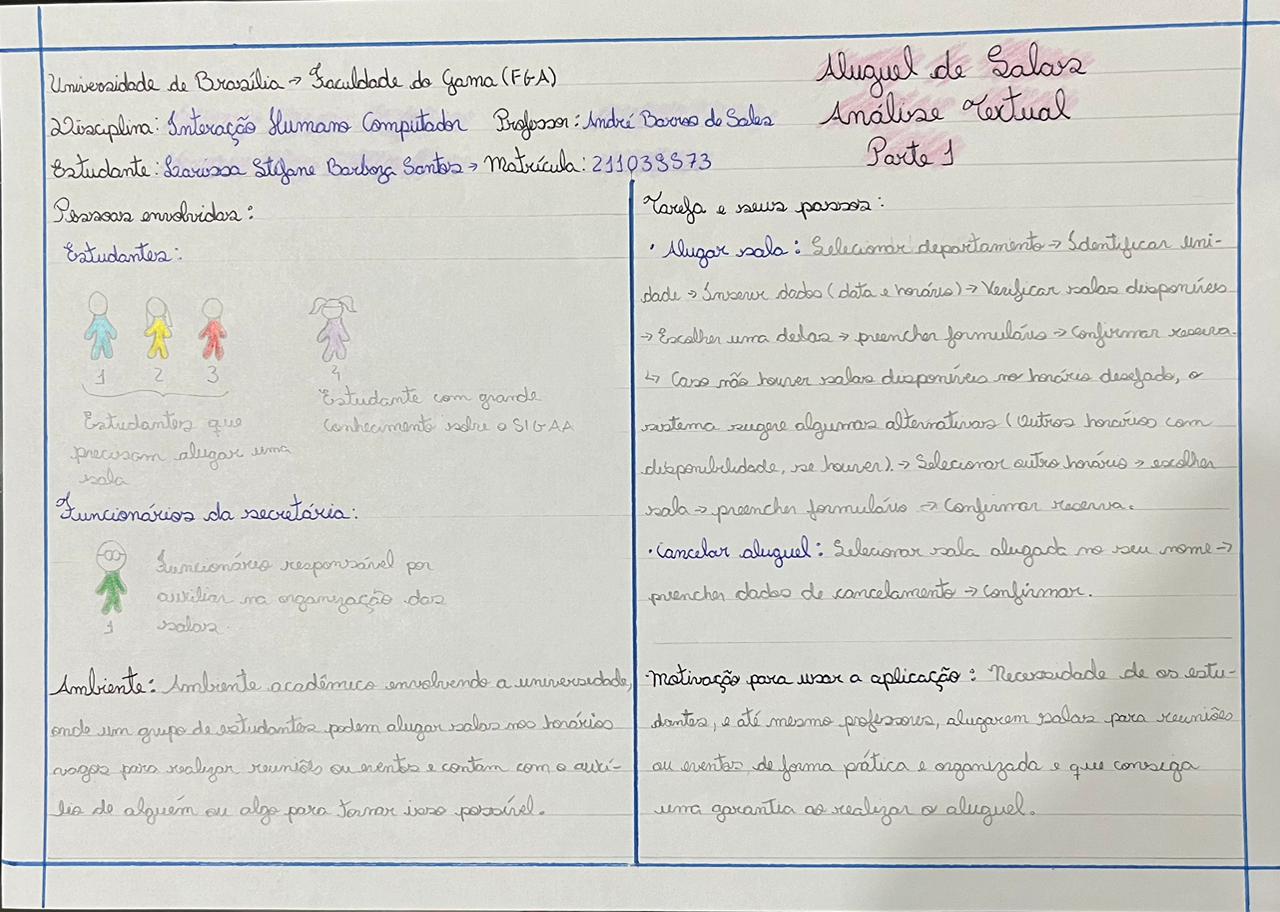 Universidade de Brasília → Faculdade do Gama (FGA)
Disciplina: Interação Humano Computador Professor: André Barros de Sales
Estudante: Larissa Stéfane Barboza Santos → Matrícula: 211039573
Aluguel de Salas
Análise Textual
Parte 1
Pessoas envolvidas:
Estudantes:
1 2 3 4
Estudantes que
precisam alugar uma
sala
Estudante com grande
conhecimento sobre o SIGAA
Funcionários da secretária:
1
Funcionário responsável por
auxiliar na organização das
salas.
Ambiente: Ambiente acadêmico envolvendo a universidade,
onde um grupo de estudantes podem alugar salas nos horários
vagos para realizar reuniões ou eventos e contam com o auxí-
lio de alguém ou algo para tornar isso possível.
Tarefa e seus passos:
· Alugar sala: Selecionar departamento → Identificar uni-
dade → Inserir dados (data e horário) → Verificar salas disponíveis
→ Escolher uma delas → preencher formulário → Confirmar reserva.
↳ Caso não houver salas disponíveis no horário desejado, o
sistema sugere algumas alternativas (Outros horários com
disponibilidade, se houver). → Selecionar outro horário → escolher
sala → preencher formulário → Confirmar reserva.
· Cancelar aluguel: Selecionar sala alugada no seu nome →
preencher dados de cancelamento → Confirmar.
Motivação para usar a aplicação: Necessidade de os estu-
dantes, e até mesmo professores, alugarem salas para reuniões
ou eventos, de forma prática e organizada e que consiga
uma garantia ao realizar o aluguel.